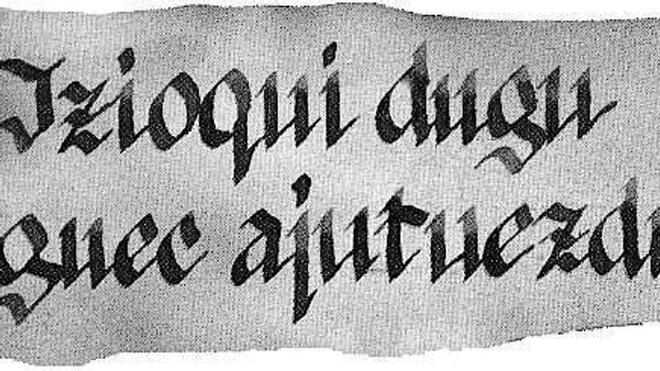 Izioqui dugu
guec ajutuezdu